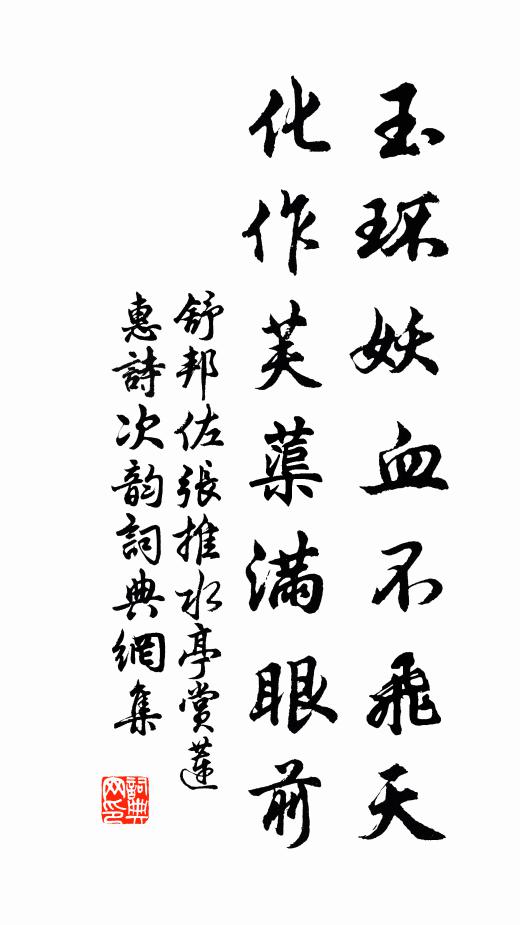 玉环妖血不飛天
化作芙蕖滿眼前
舒邦佐張推水亭賞蓮
惠詩次韵詞典網集
詞典
网印